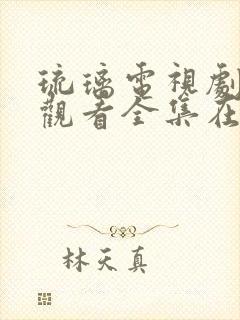 琉璃電視劇
觀看全集在
林天真